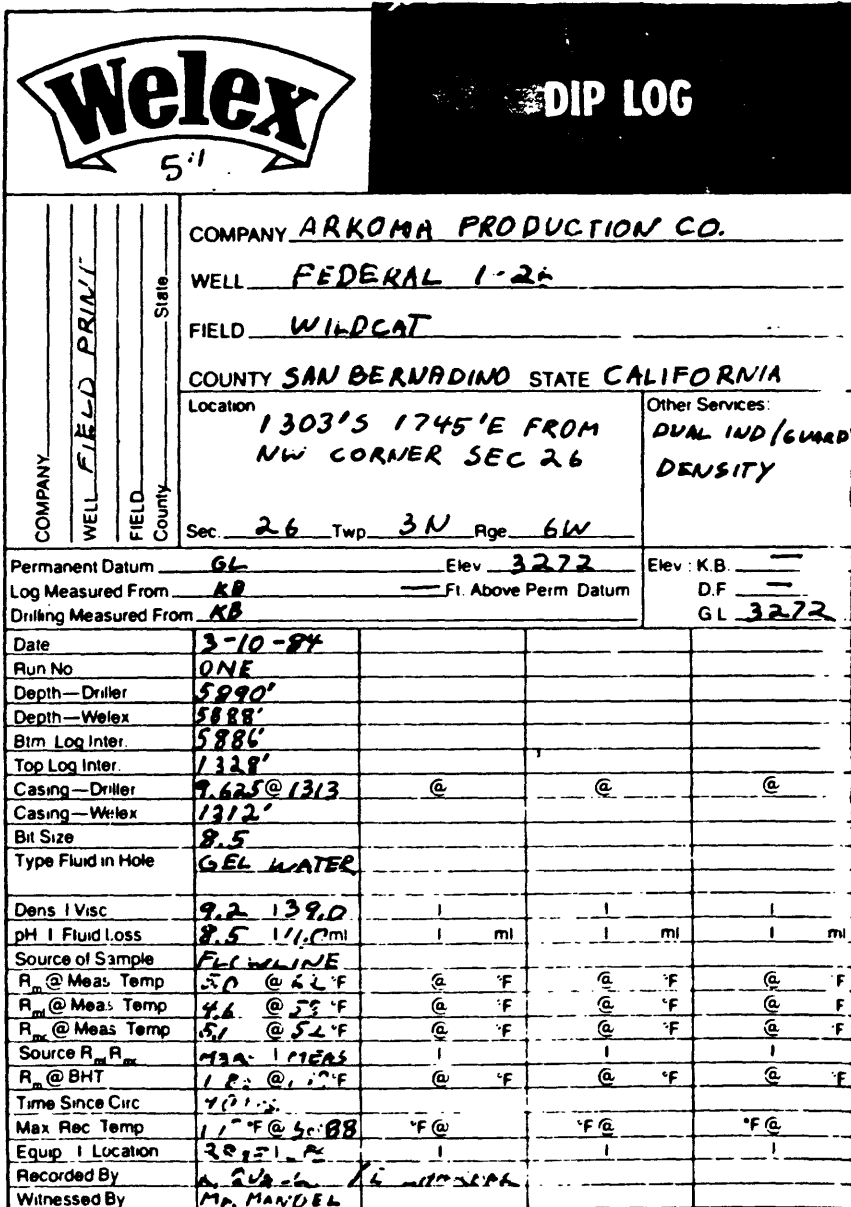 Welex
5"
DIP LOG
COMPANY
WELL FIELD PRINT
FIELD
County State
COMPANY ARKOMA PRODUCTION CO.
WELL FEDERAL
FIELD WILDCAT
COUNTY SAN BERNADINO STATE CALIFORNIA
Location
1303'S 1745'E FROM
NW CORNER SEC 26
Sec. 26 Twp 3N Rge 6W
Other Services:
DUAL IND/GUARD
DENSITY
Permanent Datum GL Elev 3272
Log Measured From KB — Ft. Above Perm Datum
Drilling Measured From KB
Elev : K.B. —
D.F —
GL 3272
Date 3-10-84
Run No ONE
Depth—Driller 5890'
Depth—Welex 5888'
Btm Log Inter. 5886'
Top Log Inter. 1328'
Casing—Driller 9.625@1313 @ @ @
Casing—Welex 1312'
Bit Size 8.5
Type Fluid in Hole GEL WATER
Dens | Visc 9.2 | 39.0 | | |
pH | Fluid Loss 8.5 | ml | ml | ml | ml
Source of Sample FLOWLINE
Rm @ Meas Temp @ °F @ °F @ °F @ °F
Rmf @ Meas Temp 4.6 @ °F @ °F @ °F @ F
Rmc @ Meas Temp 5.1 @ °F @ °F @ °F @ F
Source Rmf Rmc | MEAS | | |
Rm @ BHT @ °F @ °F @ °F @ °F
Time Since Circ
Max Rec Temp °F @ °F @ °F @ °F @
Equip | Location | | | |
Recorded By
Witnessed By MR. MANDEL